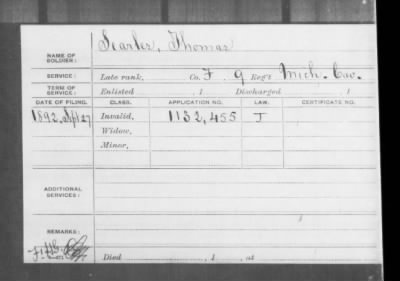 NAME OF SOLDIER: Searles, Thomas
SERVICE: Late rank, Co. F 9 Reg't Mich. Cav.
TERM OF SERVICE: Enlisted , 1 Discharged , 1
DATE OF FILING. CLASS. APPLICATION NO. LAW. CERTIFICATE NO.
1892, Sept 27 Invalid, 1132,455 J
Widow,
Minor,
ADDITIONAL SERVICES:
REMARKS:
Died , 1 , at